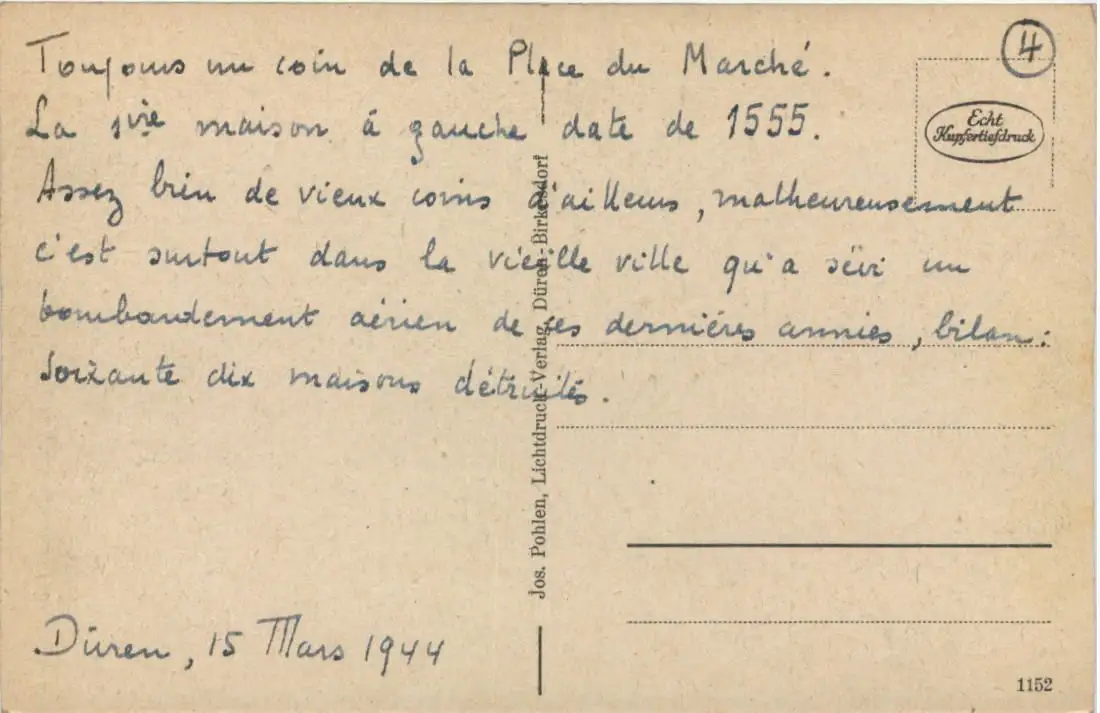 4
Toujours un coin de la Place du Marché.
La 1ère maison à gauche date de 1555.
Assez bien de vieux coins d'ailleurs, malheureusement
c'est surtout dans la vieille ville qu'a sévi un
bombardement aérien de ces dernières années, bilan:
Soixante dix maisons détruites.
Düren, 15 Mars 1944
Echt
Kupfertiefdruck
Jos. Pohlen, Lichtdruck-Verlag, Düren-Birkesdorf
1152